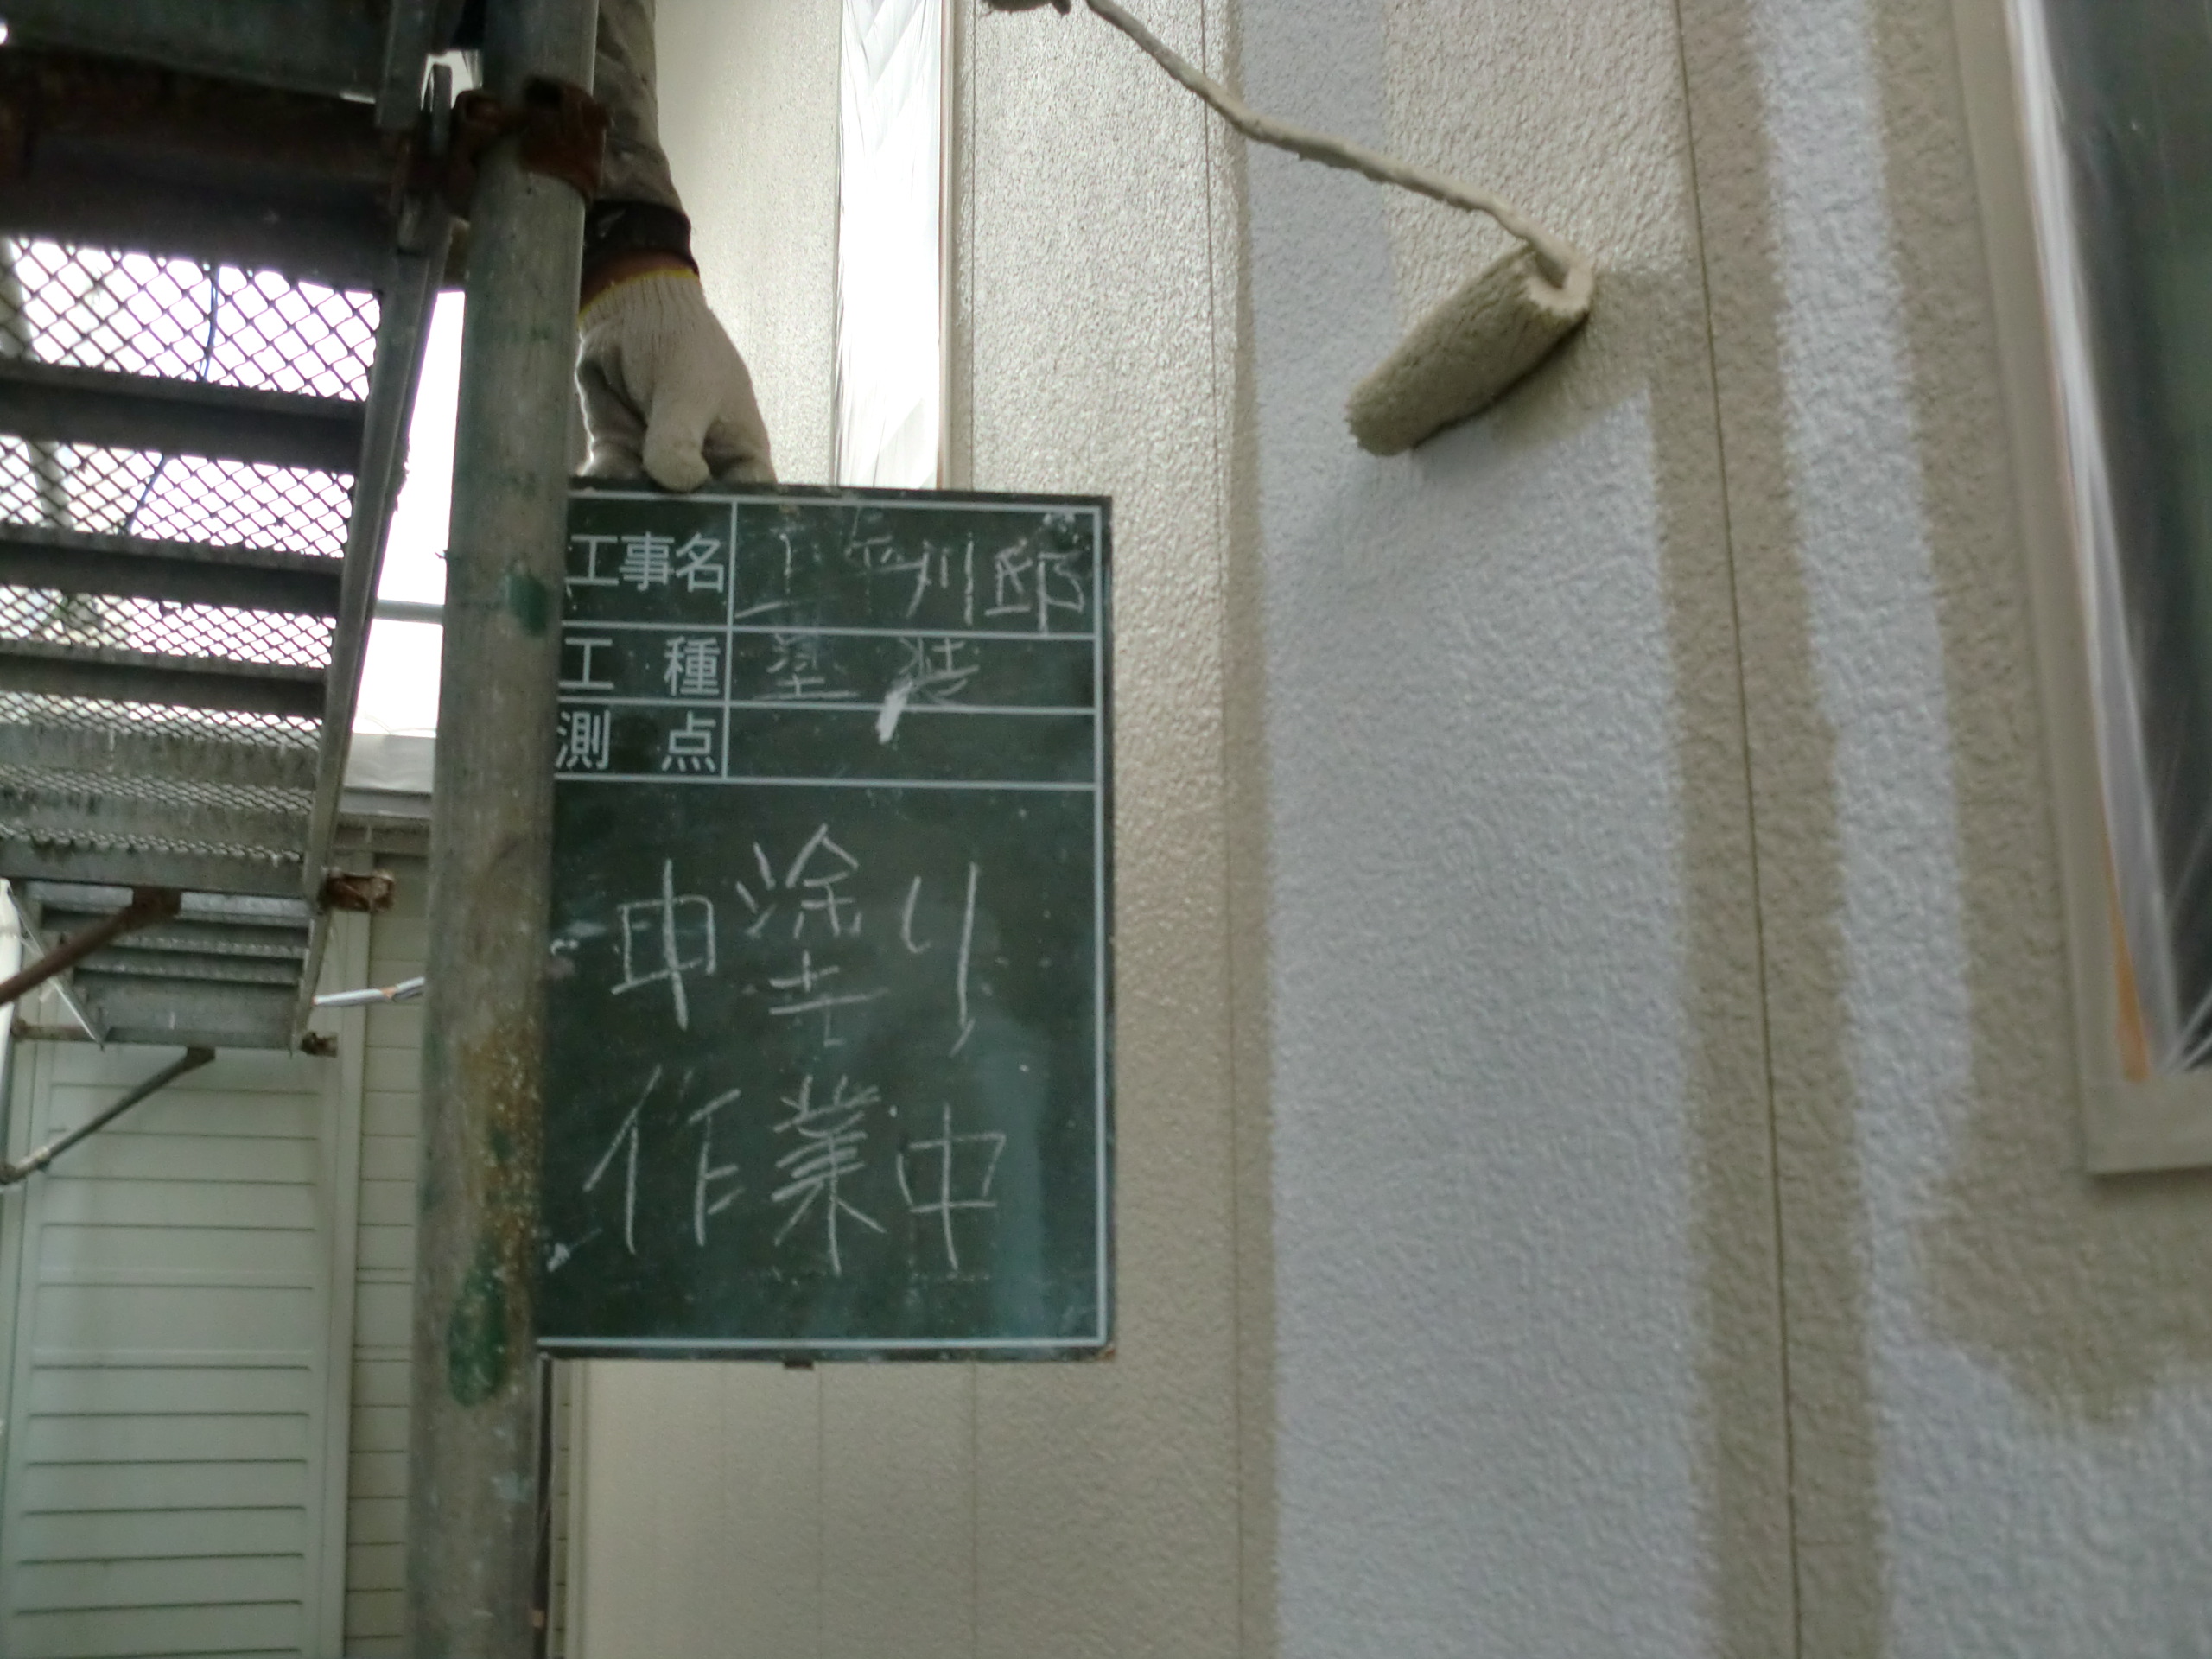 工事名 川邸
工種 塗装
測点
中塗り
作業中